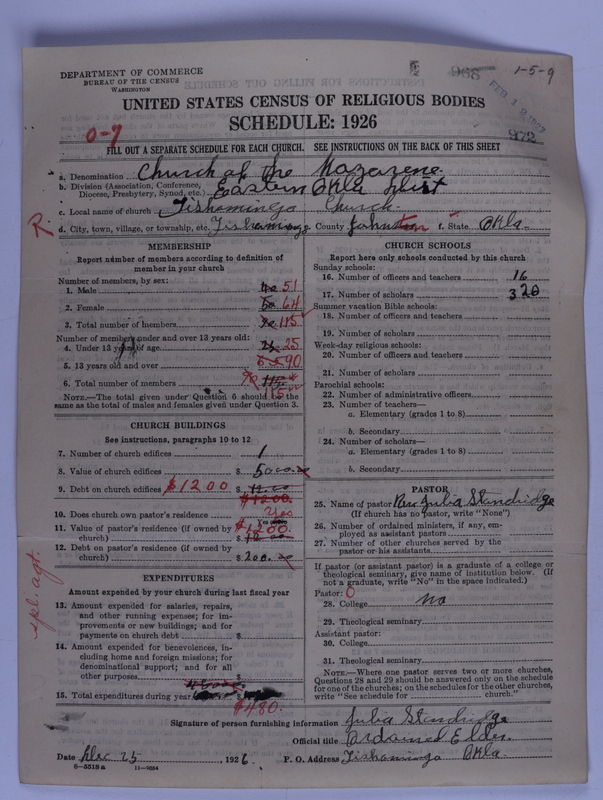 1-5-9
968
FEB 12 1927
972
DEPARTMENT OF COMMERCE
BUREAU OF THE CENSUS
WASHINGTON
UNITED STATES CENSUS OF RELIGIOUS BODIES
SCHEDULE: 1926
0-7
FILL OUT A SEPARATE SCHEDULE FOR EACH CHURCH. SEE INSTRUCTIONS ON THE BACK OF THIS SHEET
a. Denomination Church of the Nazarene
b. Division (Association, Conference, Diocese, Presbytery, Synod, etc.) Eastern Okla Dist
c. Local name of church Tishomingo Church
R.
d. City, town, village, or township, etc. Tishomingo e. County Johnston f. State Okla.
MEMBERSHIP
Report number of members according to definition of
member in your church
Number of members, by sex:
1. Male 51
2. Female 64
3. Total number of members 115
Number of members under and over 13 years old:
4. Under 13 years of age 25
5. 13 years old and over 90
6. Total number of members 115
NOTE.—The total given under Question 6 should be the
same as the total of males and females given under Question 3.
CHURCH BUILDINGS
See instructions, paragraphs 10 to 12
7. Number of church edifices 1
8. Value of church edifices $ 5000.00
9. Debt on church edifices $1200 $
$1200.
10. Does church own pastor's residence Yes
11. Value of pastor's residence (if owned by
church) $ $1200.
12. Debt on pastor's residence (if owned by
church) $ 200.00
EXPENDITURES
Amount expended by church during last fiscal year
13. Amount expended for salaries, repairs,
and other running expenses; for im-
provements or new buildings; and for
payments on church debt $
14. Amount expended for benevolences, in-
cluding home and foreign missions; for
denominational support; and for all
other purposes $
15. Total expenditures during year $
$480.
CHURCH SCHOOLS
Report here only schools conducted by this church
Sunday schools:
16. Number of officers and teachers 16
17. Number of scholars 320
Summer vacation Bible schools:
18. Number of officers and teachers
19. Number of scholars
Week-day religious schools:
20. Number of officers and teachers
21. Number of scholars
Parochial schools:
22. Number of administrative officers
23. Number of teachers—
a. Elementary (grades 1 to 8)
b. Secondary
24. Number of scholars—
a. Elementary (grades 1 to 8)
b. Secondary
PASTOR
25. Name of pastor Rev Julia Standridge
(If church has no pastor, write "None")
26. Number of ordained ministers, if any, em-
ployed as assistant pastors
27. Number of other churches served by the
pastor or his assistants
If pastor (or assistant pastor) is a graduate of a college or
theological seminary, give name of institution below. (If
not a graduate, write "No" in the space indicated.)
Pastor: 0
28. College no
29. Theological seminary
Assistant pastor:
30. College
31. Theological seminary
NOTE.—Where one pastor serves two or more churches,
Questions 28 and 29 should be answered only on the schedule
for one of the churches; on the schedules for the other churches,
write "See schedule for church."
Signature of person furnishing information Julia Standridge
Official title Ordained Elder.
Date Dec 25, 1926 P. O. Address Tishomingo Okla.
8-5518a 11-9054